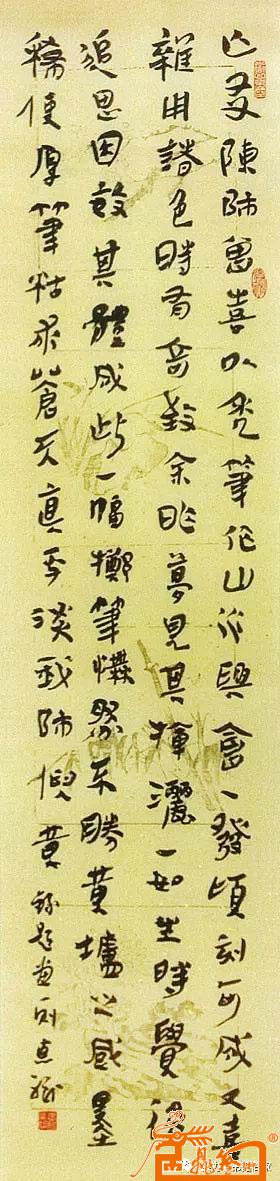 亡友陳師曾喜以禿筆作山水興會一發頃刻可成又喜
雜用諸色時有奇致余昨夢見其揮灑一如生時覺後
追思因效其體成此一幅擲筆憮然不勝黄壚之感墨
稀使厚筆枯求蒼天真平淡我師倪黄 錄題畫一則